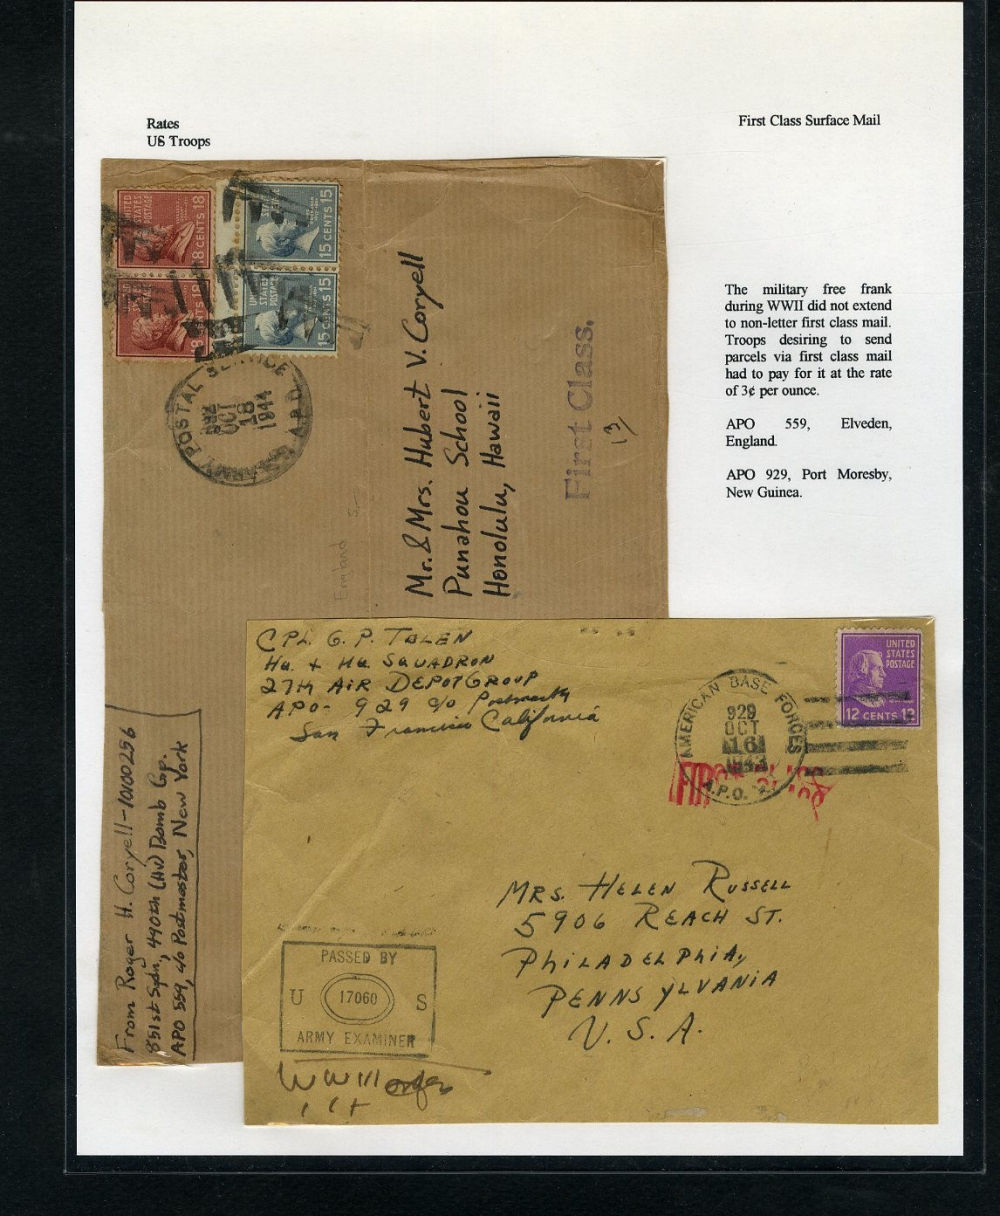 Rates
US Troops
First Class Surface Mail
The military free frank
during WWII did not extend
to non-letter first class mail.
Troops desiring to send
parcels via first class mail
had to pay for it at the rate
of 3¢ per ounce.
APO 559, Elveden,
England.
APO 929, Port Moresby,
New Guinea.
UNITED
STATES
POSTAGE
18 CENTS 18
8 CENTS 18
15 CENTS 15
STATES
POSTAGE
15 CENTS 15
ARMY POSTAL SERVICE
A.P.O.
OCT
18
1944
Mr. & Mrs. Hubert V. Coryell
Punahou School
Honolulu, Hawaii
First Class.
13/
England 5-
From Roger H. Coryell - 10100256
851st Sqdn, 490th (HV) Bomb Gp.
APO 559, c/o Postmaster, New York
CPL. G. P. TOLEN
HQ. + HQ. SQUADRON
27TH AIR DEPOT GROUP
APO- 929 c/o Postmaster
San Francisco California
UNITED
STATES
POSTAGE
12 CENTS 12
AMERICAN BASE FORCES
929
OCT
16
1943
A.P.O.
MRS. HELEN RUSSELL
5906 REACH ST.
PHILADELPHIA,
PENNSYLVANIA
U. S. A.
PASSED BY
U 17060 S
ARMY EXAMINER